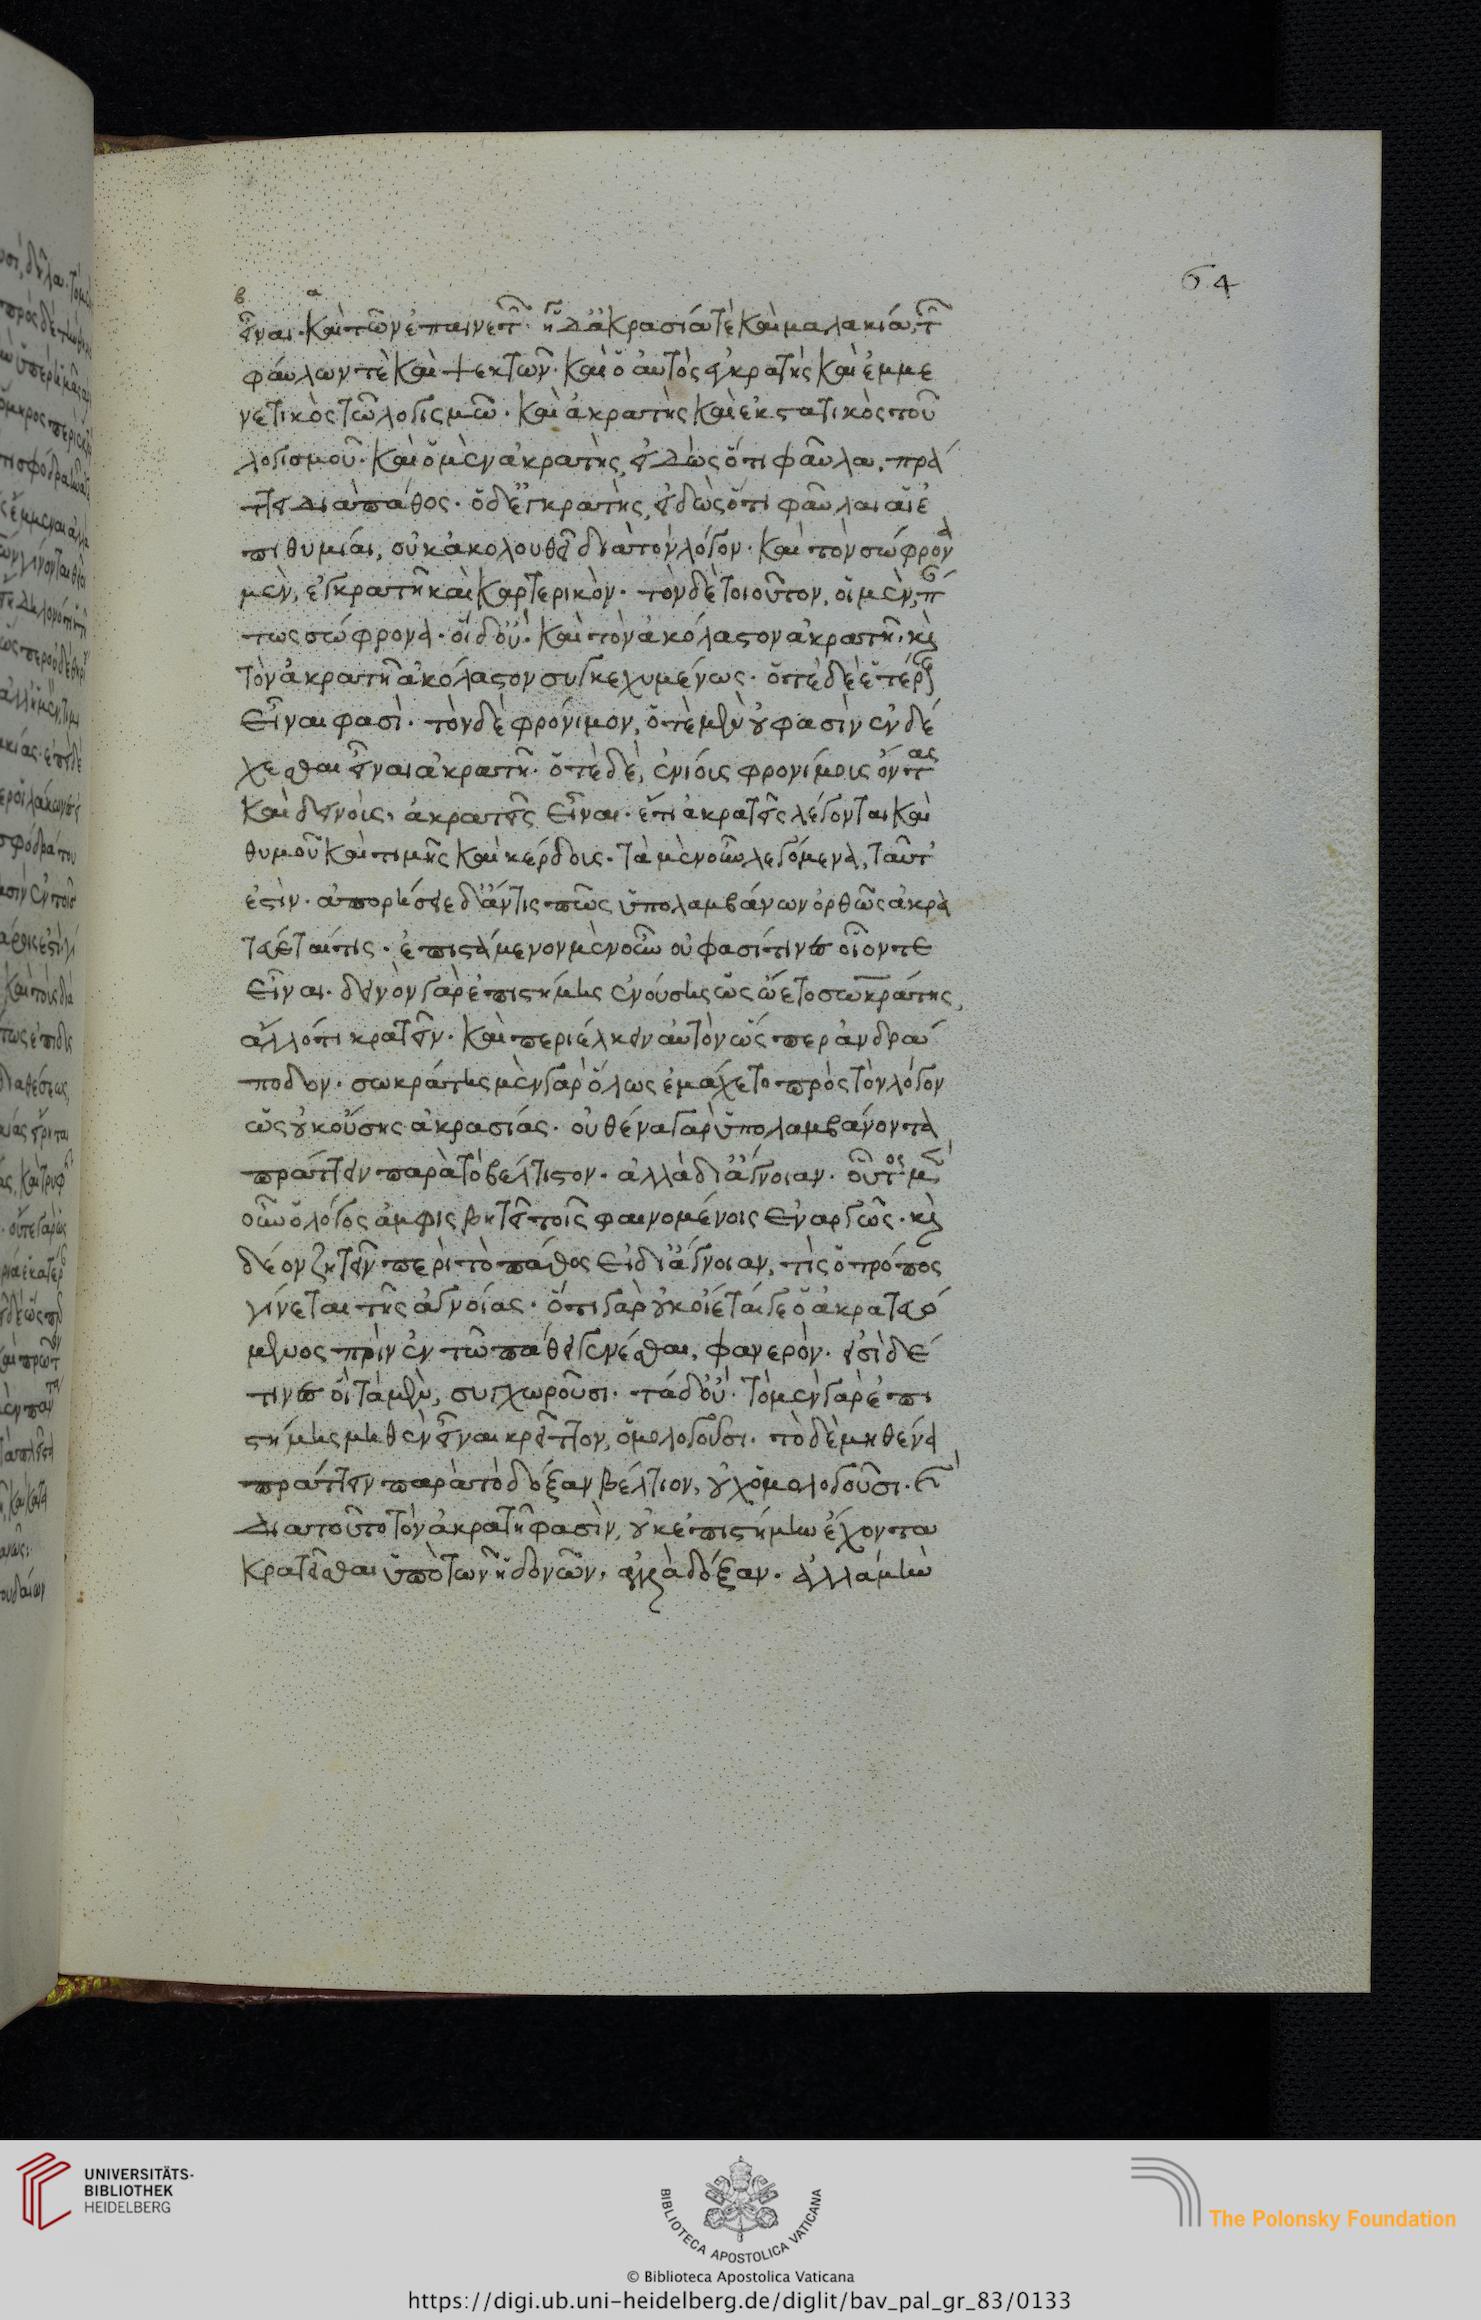 64
β α
εἶναι· καὶ τῶν ἐπαινετῶν· ἡ δ' ἀκρασία τὲ καὶ μαλακία, τῶν
φαύλων τὲ καὶ ψεκτῶν· καὶ ὁ αὐτὸς ἐγκρατὴς καὶ ἐμμε
νετικὸς τῶ λογισμῶ· καὶ ἀκρατὴς καὶ ἐκστατικὸς τοῦ
λογισμοῦ· καὶ ὁ μὲν ἀκρατὴς, εἰδὼς ὅτι φαῦλα, πρά
τει διὰ πάθος· ὁ δ' ἐγκρατὴς, εἰδὼς ὅτι φαῦλαι αἱ ἐ
πιθυμίαι, οὐκ ἀκολουθεῖ διὰ τὸν λόγον· καὶ τὸν σώφρονα
μὲν, ἐγκρατῆ καὶ καρτερικὸν· τὸν δὲ τοιοῦτον, οἱ μὲν, πάν
τως σώφρονα· οἱ δ' οὔ· καὶ τὸν ἀκόλαστον ἀκρατῆ· καὶ
τὸν ἀκρατῆ ἀκόλαστον συγκεχυμένως· ὁτὲ δὲ ἑτέρους
εἶναι φασὶ· τὸν δὲ φρόνιμον, ὁτὲ μὲν οὔ φασὶν ἐνδέ
χεσθαι εἶναι ἀκρατῆ· ὁτὲ δὲ, ἐνίοις φρονίμοις ὄντας
καὶ δεινοὶς, ἀκρατεῖς εἶναι· ἔτι ἀκρατεῖς λέγονται καὶ
θυμοῦ καὶ τιμῆς καὶ κέρδοις· τὰ μὲν οὖν λεγόμενα, ταῦτ'
ἐστὶν· ἀπορήσειε δ' ἄν τις πῶς ὑπολαμβάνων ὀρθῶς ἀκρα
τεύεται τίς· ἐπιστάμενον μὲν οὖν οὔ φασί τινες οἷόν τε
εἶναι· δεινὸν γὰρ ἐπιστήμης ἐνούσης ὡς ὤετο σωκράτης,
ἄλλό τι κρατεῖν· καὶ περιέλκειν αὐτὸν ὥσπερ ἀνδρά
ποδον· σωκράτης μὲν γὰρ ὅλως ἐμάχετο πρὸς τὸν λόγον
ὡς οὐκ οὔσης ἀκρασίας· οὐθένα γὰρ ὑπολαμβάνοντα
πράττειν παρὰ τὸ βέλτιστον· ἀλλὰ δι' ἄγνοιαν· οὗτος μὲν
οὖν ὁ λόγος ἀμφισβητεῖ τοῖς φαινομένοις ἐναργῶς· καὶ
δέον ζητεῖν περὶ τὸ πάθος εἰ δι' ἄγνοιαν, τὶς ὁ τρόπος
γίνεται τῆς ἀγνοίας· ὅτι γὰρ οὐκ οἴεταί γε ὁ ἀκρατευό
μενος πρὶν ἐν τῶ πάθει γενέσθαι, φανερὸν· εἰσὶ δέ
τινες οἳ τὰ μὲν, συγχωροῦσι· τὰ δ' οὔ· τὸ μὲν γὰρ ἐπι
στήμης μηθὲν εἶναι κρεῖττον, ὁμολογοῦσι· τὸ δὲ μηθένα
πράττειν παρὰ τὸ δόξαν βέλτιον, οὐχ ὁμολογοῦσι· καὶ
διὰ τοῦτο τὸν ἀκρατῆ φασὶν, οὐκ ἐπιστήμην ἔχοντα
κρατεῖσθαι ὑπὸ τῶν ἡδονῶν, ἀλλὰ δόξαν· ἀλλὰ μὴν
UNIVERSITÄTS-
BIBLIOTHEK
HEIDELBERG
BIBLIOTECA APOSTOLICA VATICANA
The Polonsky Foundation
© Biblioteca Apostolica Vaticana
https://digi.ub.uni-heidelberg.de/diglit/bav_pal_gr_83/0133